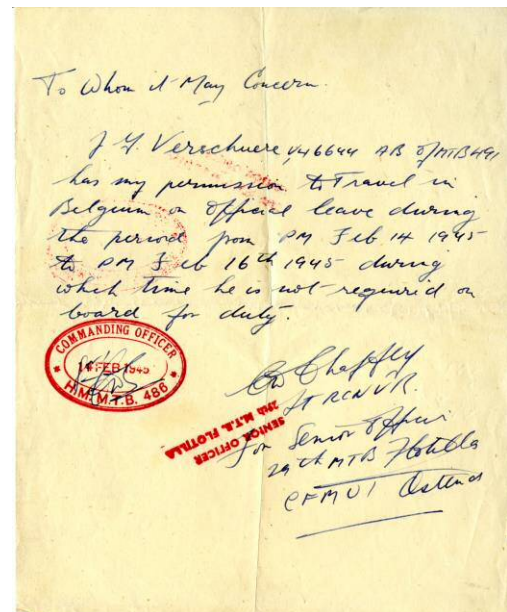 To Whom it May Concern.
J Y. Verschuere V46644 AB of MTB 491
has my permission to Travel in
Belgium on Official leave during
the period from PM Feb 14 1945
to PM Feb 16th 1945 during
which time he is not required on
board for duty.
COMMANDING OFFICER
14 FEB 1945
H.M. M.T.B. 486
Lt RCNVR.
SENIOR OFFICER
29th M.T.B. FLOTILLA
for Senior Officer
29th MTB Flotilla
CFMU1 Ostend